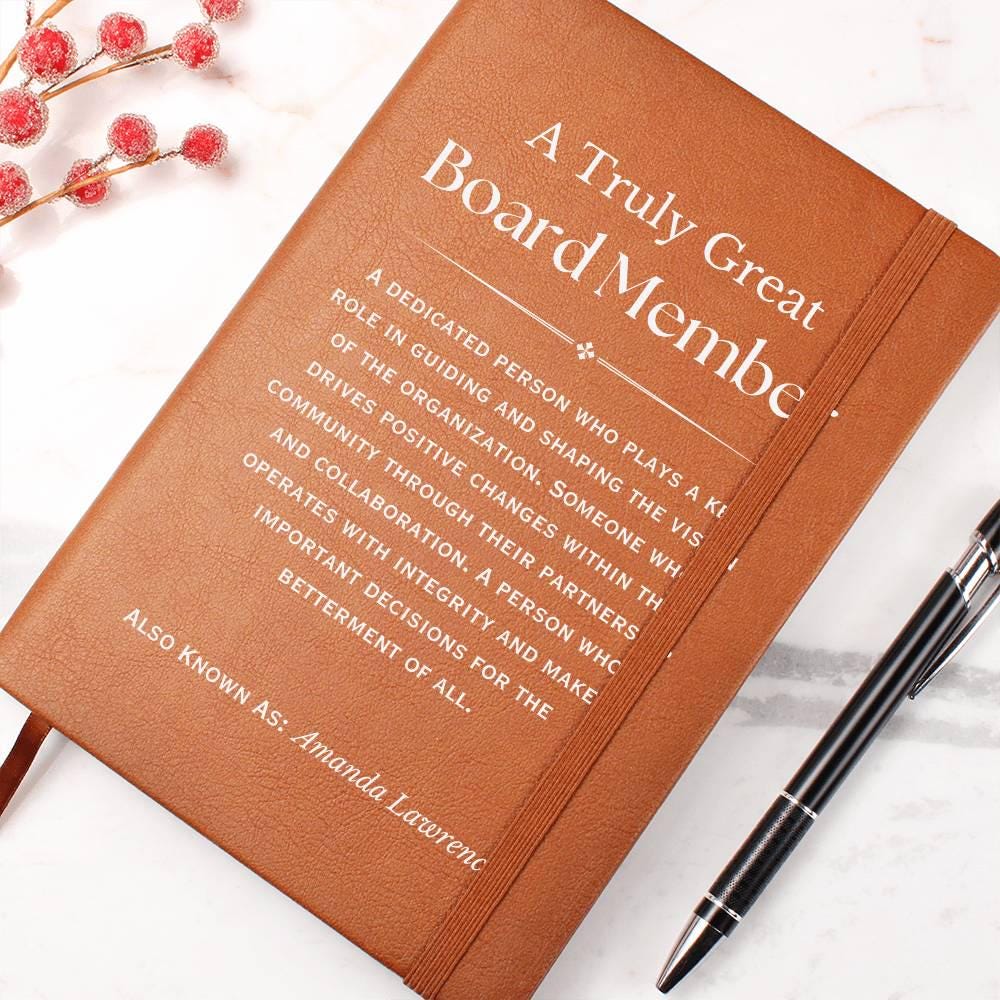 A Truly Great
Board Member
A DEDICATED PERSON WHO PLAYS A KE
ROLE IN GUIDING AND SHAPING THE VIS
OF THE ORGANIZATION. SOMEONE WH
DRIVES POSITIVE CHANGES WITHIN TH
COMMUNITY THROUGH THEIR PARTNERS
AND COLLABORATION. A PERSON WHO
OPERATES WITH INTEGRITY AND MAKE
IMPORTANT DECISIONS FOR THE
BETTERMENT OF ALL.
ALSO KNOWN AS: Amanda Lawrenc